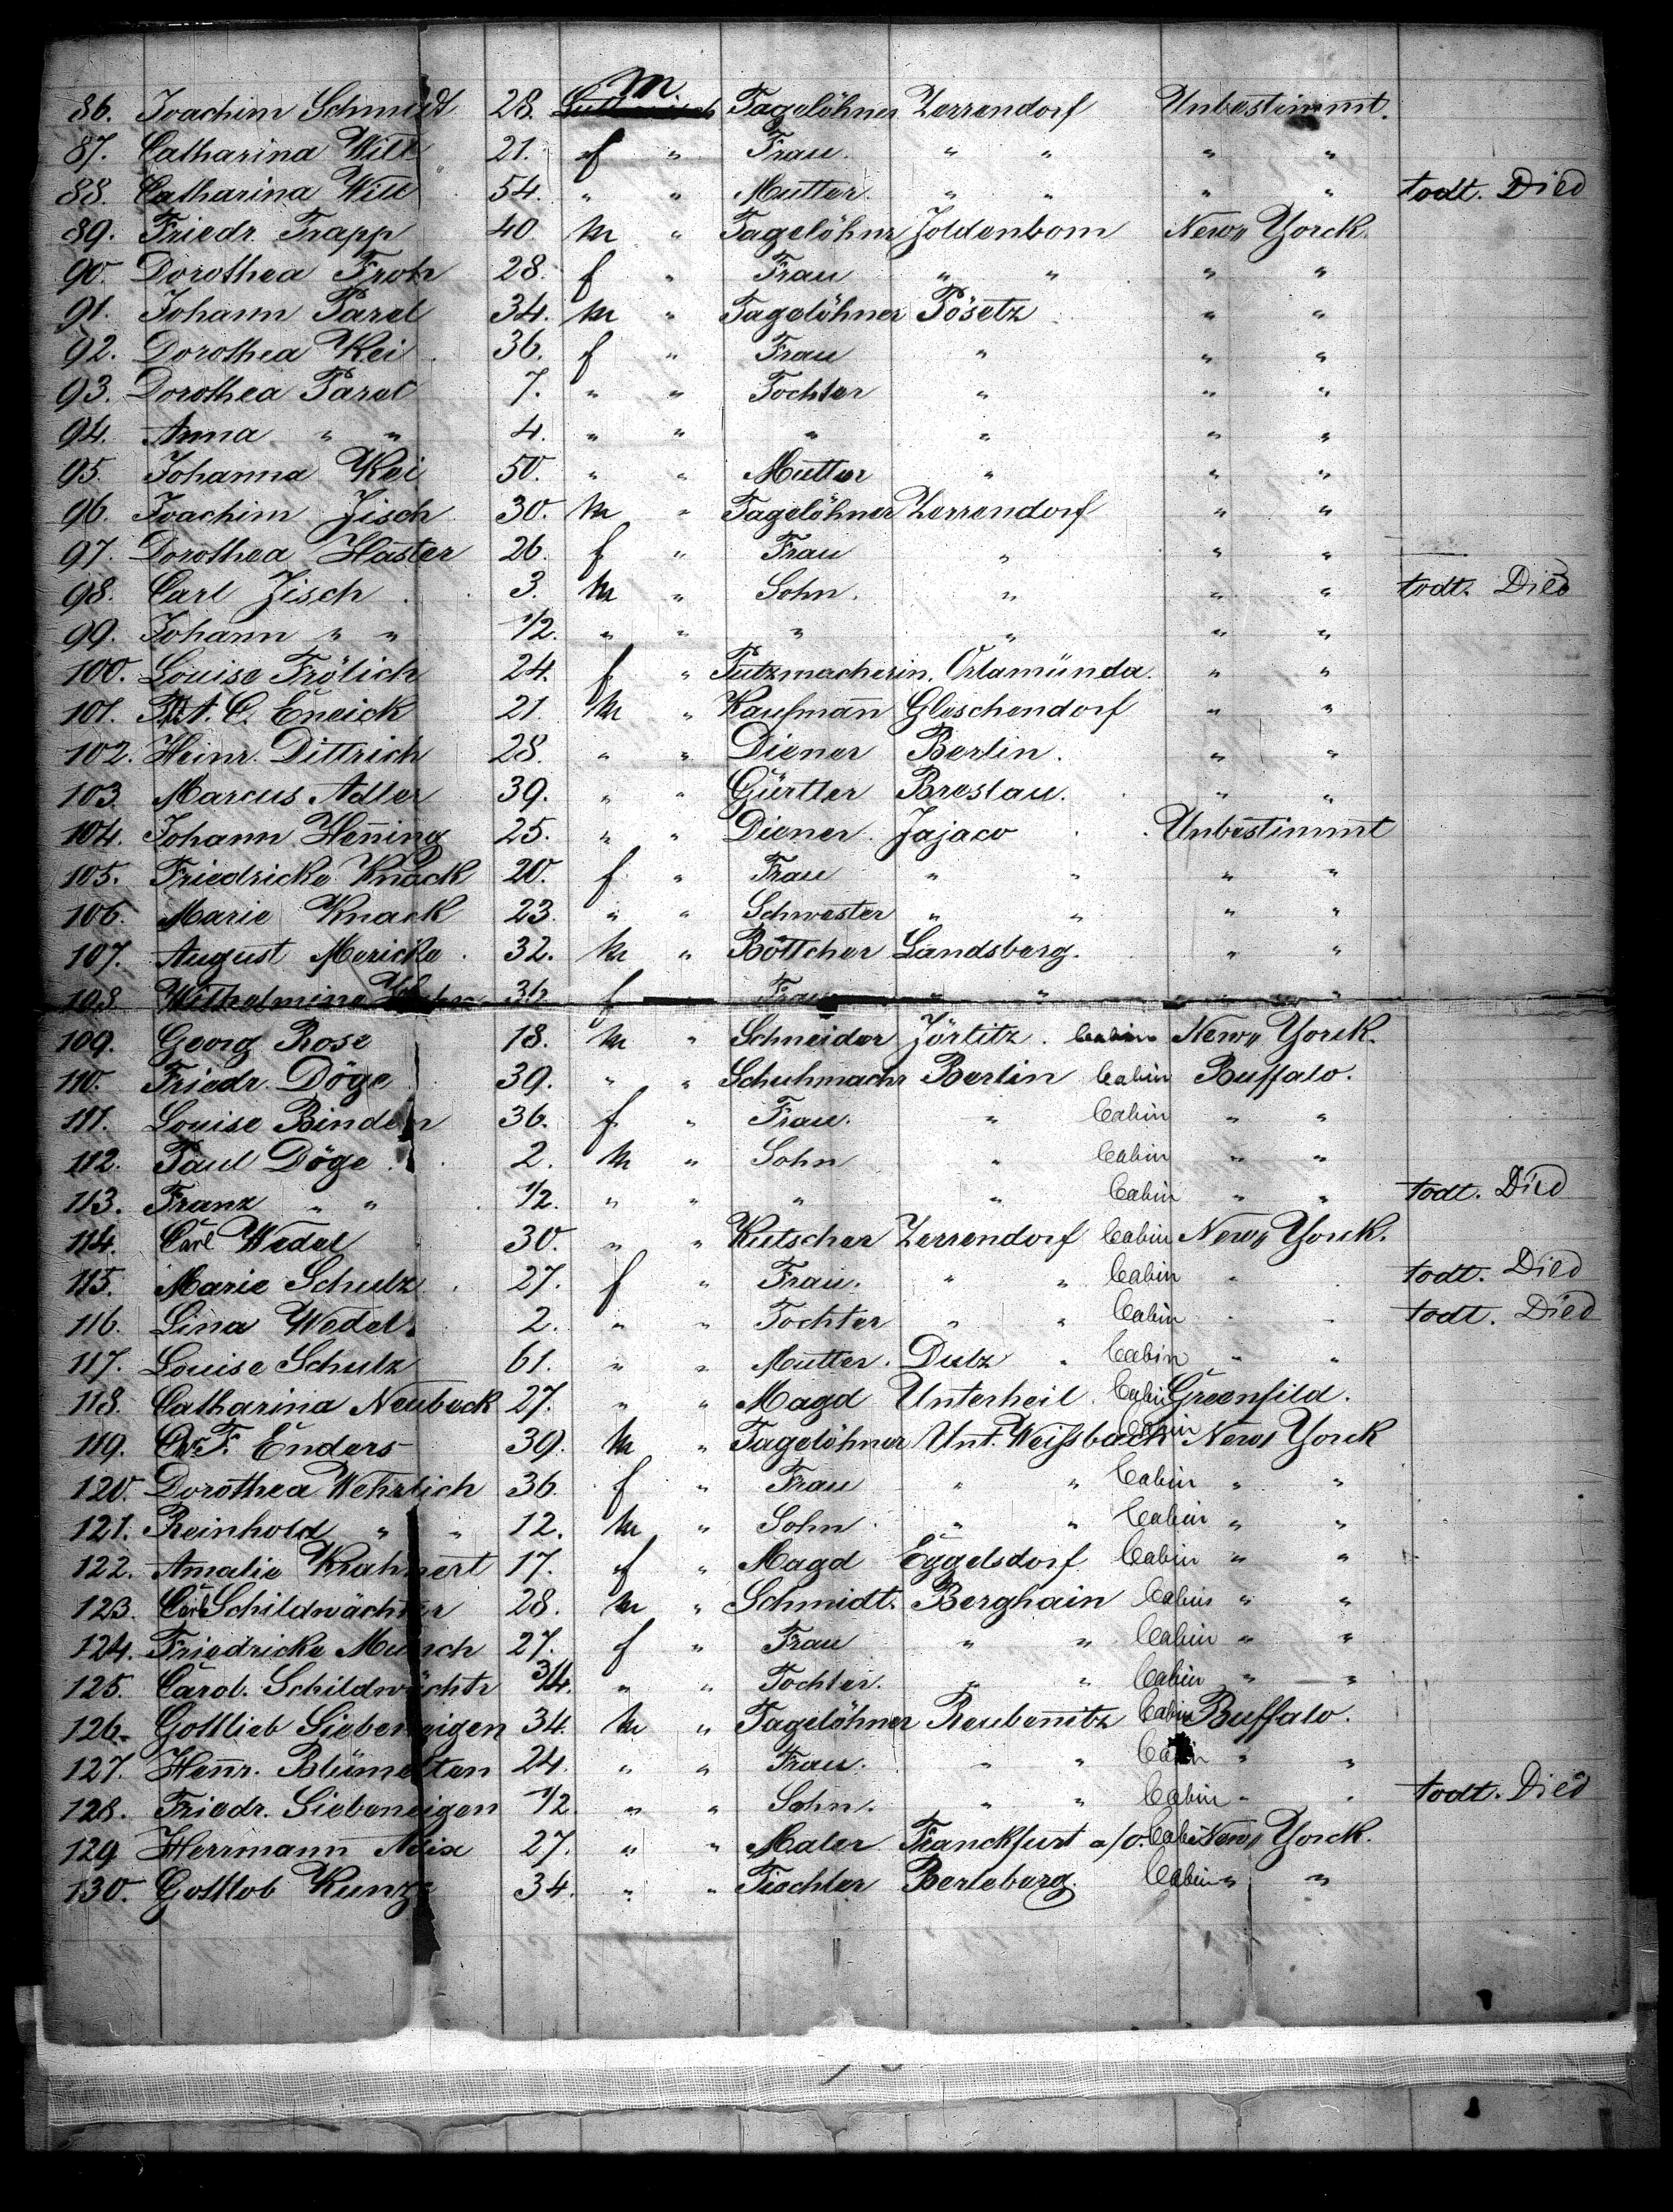 86. Joachim Schmidt 28. M. Tagelöhner Zerrendorf Unbestimmt.
87. Catharina Witt 21. f " Frau. " " " "
88. Catharina Witt 54. " " Mutter. " " " " todt. Died
89. Friedr. Trapp 40. m " Tagelöhnr Joldenbom New Yorck.
90. Dorothea Froh 28. f " Frau " " " "
91. Johann Parel 34. m " Tagelöhner Pösetz " "
92. Dorothea Kei 36. f " Frau " " "
93. Dorothea Parel 7. " " Tochter " " "
94. Anna " " 4. " " " " " "
95. Johanna Kei 50. " " Mutter " " "
96. Joachim Jisch 30. m " Tagelöhner Zerrendorf " "
97. Dorothea Haster 26. f " Frau " " "
98. Carl Jisch 3. m " Sohn. " " " todt. Died
99. Johann " " 1/2. " " " " " "
100. Louise Frölich 24. f " Putzmacherin. Orlamünda. " "
101. A. C. Eneick 21. m " Kaufmañ Gleschendorf " "
102. Heinr. Dittrich 28. " " Diener Berlin. " "
103. Marcus Adler 39. " " Gürtler Breslau. " "
104. Johann Heñing 25. " " Diener Jajaco Unbestimmt
105. Friedricke Knack 20. f " Frau " " " "
106. Marie Knack 23. " " Schwester " " " "
107. August Mericke 32. m " Böttcher Landsberg. " "
108. Wilhelmine 36 f Frau " " " "
109. Georg Rose 18. m " Schneider Jörlitz. Cabin New Yorck.
110. Friedr. Döge 39. " " Schuhmachr Berlin Cabin Buffalo.
111. Louise Binden 36. f " Frau. " Cabin " "
112. Paul Döge 2. m " Sohn " Cabin " "
113. Franz " " 1/2. " " " " Cabin " " todt. Died
114. Carl Wedel 30. " " Kutscher Zerrendorf Cabin New Yorck.
115. Marie Schulz 27. f " Frau. " " Cabin " " todt. Died
116. Lina Wedel 2. " " Tochter " " Cabin " " todt. Died
117. Louise Schulz 61. " " Mutter. Dulz " Cabin " "
118. Catharina Neubeck 27. " " Magd Unterheil. Cabin Greenfild.
119. Chr. F. Enders 39. m " Tagelöhner Unt. Weißbach Cabin New Yorck
120. Dorothea Wehrlich 36 f " Frau " " Cabin " "
121. Reinhold " " 12. m " Sohn " " Cabin " "
122. Amalie Krahnert 17. f " Magd Eggelsdorf Cabin " "
123. Carl Schildwächter 28. m " Schmidt. Berghain Cabin " "
124. Friedricke Munch 27. f " Frau " " Cabin " "
125. Carol. Schildwächtr 3/4. " " Tochter. " " Cabin " "
126. Gottlieb Siebeneigen 34. m " Tagelöhner Reubeñitz Cabin Buffalo.
127. Heñr. Blümelten 24. " " Frau. " " Cabin " "
128. Friedr. Siebeneigen 1/2. " " Sohn. " " Cabin " " todt. Died
129. Herrmann Nix 27. " " Maler Franckfurt a/o. Cabin New Yorck.
130. Gottlob Kunze 34. " " Tischler Berleberg. Cabin " "